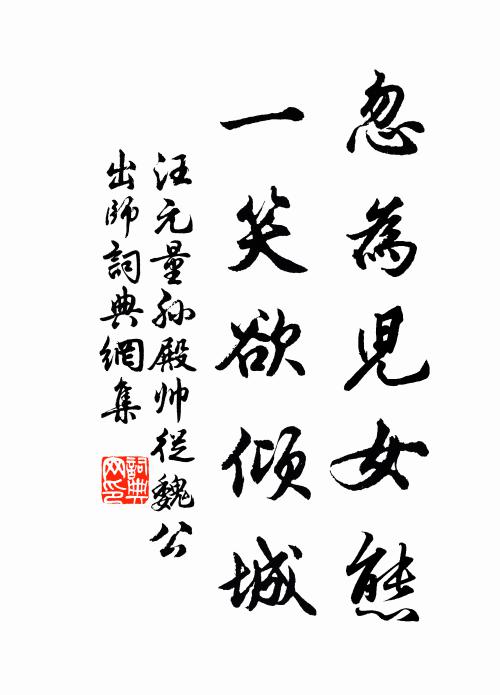 忽為兒女態
一笑欲傾城
汪元量孫殿帥從魏公
出師詞典網集
詞典
网印